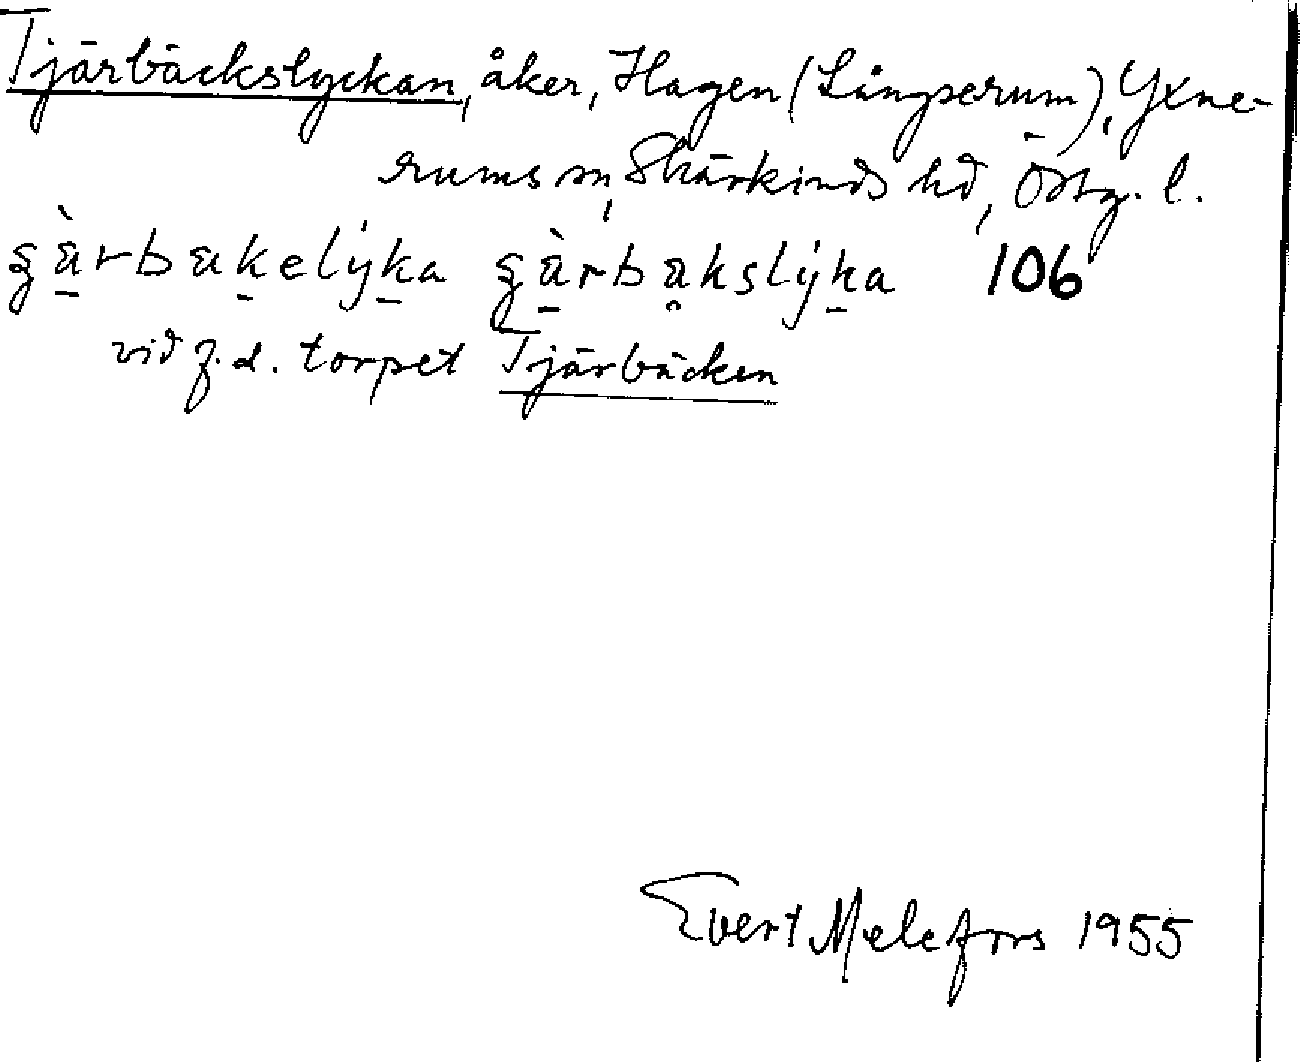 Tjärbäckslyckan, åker, Hagen (Långserum), Yxne-
rums sn, Skärkinds hd, Östg. l.
106
vid f.d. torpet Tjärbäcken
Evert Melefors 1955